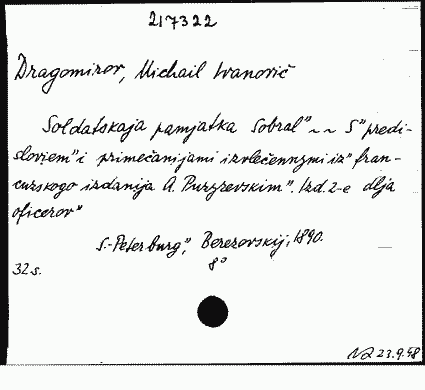 217322
Dragomirov, Michail Ivanovič
Soldatskaja pamjatka Sobral" ~ ~ S" predi-
sloviem" i primečanijami izvlečennymi iz" fran-
cuzskogo izdanija A. Puzyrevskim". Izd. 2-e dlja
oficerov"
S.-Peterburg", Berezovskij, 1890.
32 s. 8°
23.9.48